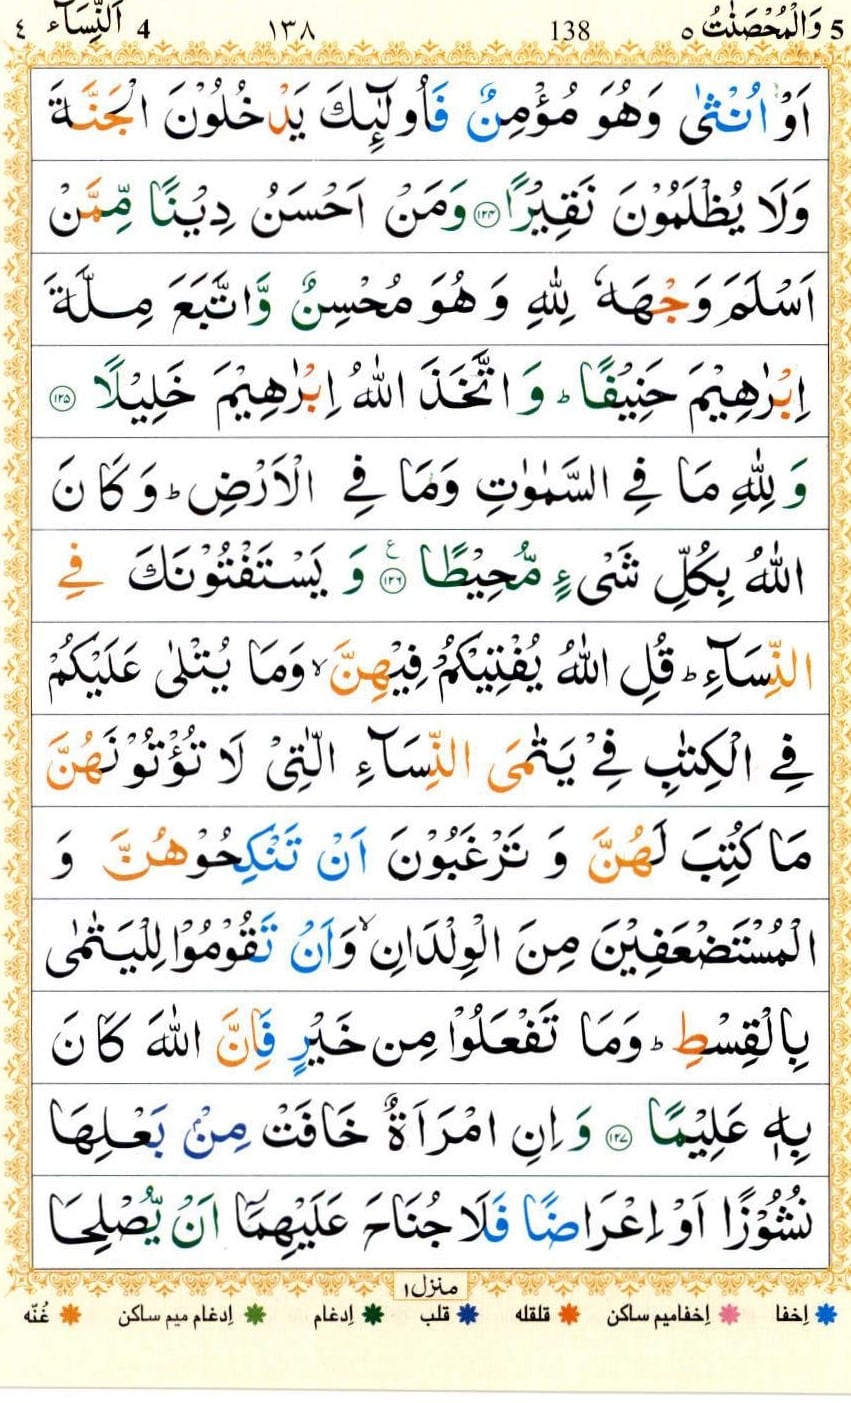 5 وَالْمُحْصَنٰتُ ٥ 138 ١٣٨ 4 اَلنِّسَآء ٤
اَوْ اُنْثٰى وَهُوَ مُؤْمِنٌ فَاُولٰٓئِكَ يَدْخُلُوْنَ الْجَنَّةَ
وَلَا يُظْلَمُوْنَ نَقِيْرًا ۝١٢٤ وَمَنْ اَحْسَنُ دِيْنًا مِّمَّنْ
اَسْلَمَ وَجْهَهٗ لِلّٰهِ وَهُوَ مُحْسِنٌ وَّاتَّبَعَ مِلَّةَ
اِبْرٰهِيْمَ حَنِيْفًا ؕ وَاتَّخَذَ اللّٰهُ اِبْرٰهِيْمَ خَلِيْلًا ۝١٢٥
وَلِلّٰهِ مَا فِي السَّمٰوٰتِ وَمَا فِي الْاَرْضِ ؕ وَكَانَ
اللّٰهُ بِكُلِّ شَىْءٍ مُّحِيْطًا ۝١٢٦ ع وَيَسْتَفْتُوْنَكَ فِي
النِّسَآءِ ؕ قُلِ اللّٰهُ يُفْتِيْكُمْ فِيْهِنَّ ۙ وَمَا يُتْلٰى عَلَيْكُمْ
فِي الْكِتٰبِ فِيْ يَتٰمَى النِّسَآءِ الّٰتِيْ لَا تُؤْتُوْنَهُنَّ
مَا كُتِبَ لَهُنَّ وَتَرْغَبُوْنَ اَنْ تَنْكِحُوْهُنَّ وَ
الْمُسْتَضْعَفِيْنَ مِنَ الْوِلْدَانِ ۙ وَاَنْ تَقُوْمُوْا لِلْيَتٰمٰى
بِالْقِسْطِ ؕ وَمَا تَفْعَلُوْا مِنْ خَيْرٍ فَاِنَّ اللّٰهَ كَانَ
بِهٖ عَلِيْمًا ۝١٢٧ وَاِنِ امْرَاَةٌ خَافَتْ مِنْۢ بَعْلِهَا
نُشُوْزًا اَوْ اِعْرَاضًا فَلَا جُنَاحَ عَلَيْهِمَآ اَنْ يُّصْلِحَا
منزل ١
اِخفا اِخفامیم ساکن قلقله قلب اِدغام اِدغام میم ساکن غُنّه